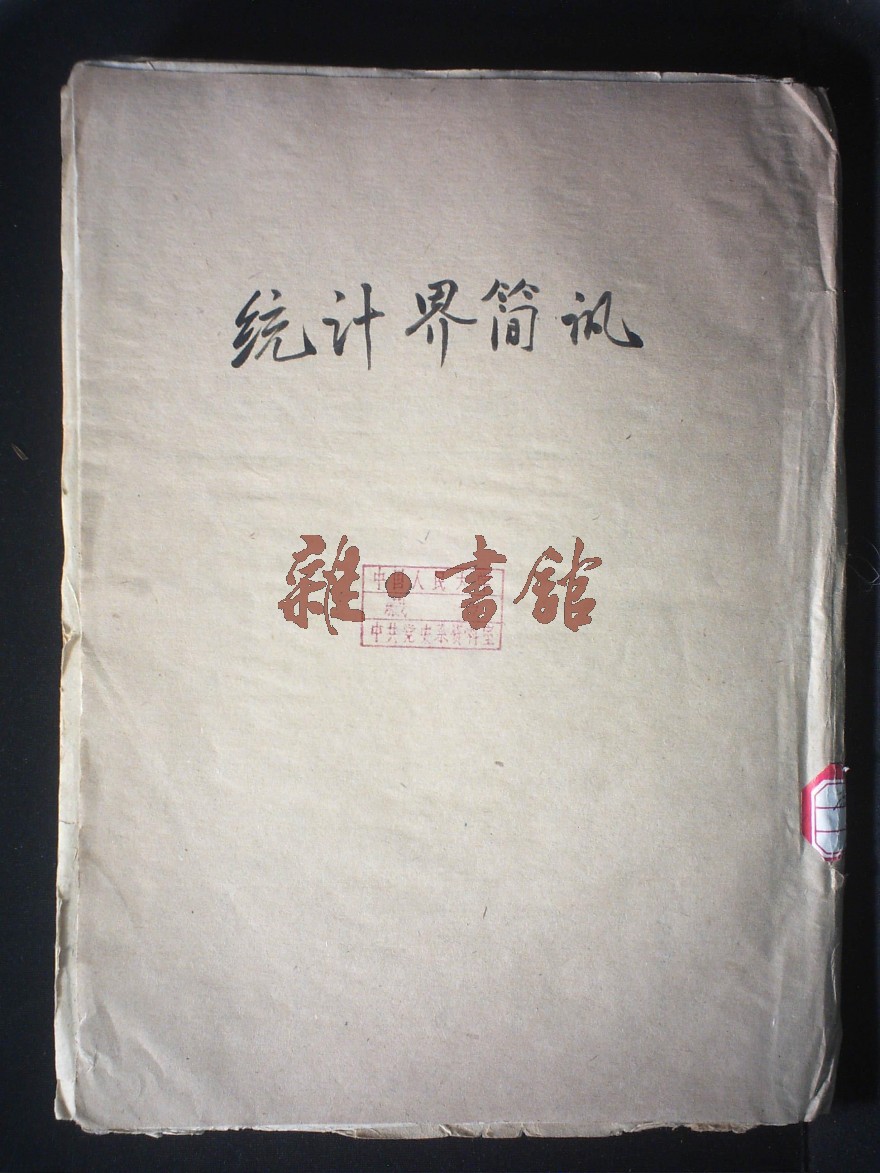 统计界简讯
雜·書館
中国人民大学
藏
中共党史系资料室